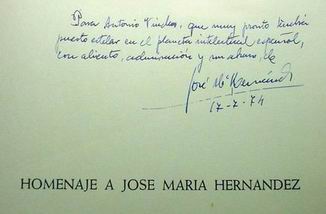 Para Antonio Vindeo, que muy pronto tendrá
puesto estelar en el planeta intelectual español,
con aliento, admiración y un abrazo, de
José Mª Hernández
17-7-74
HOMENAJE A JOSE MARIA HERNANDEZ